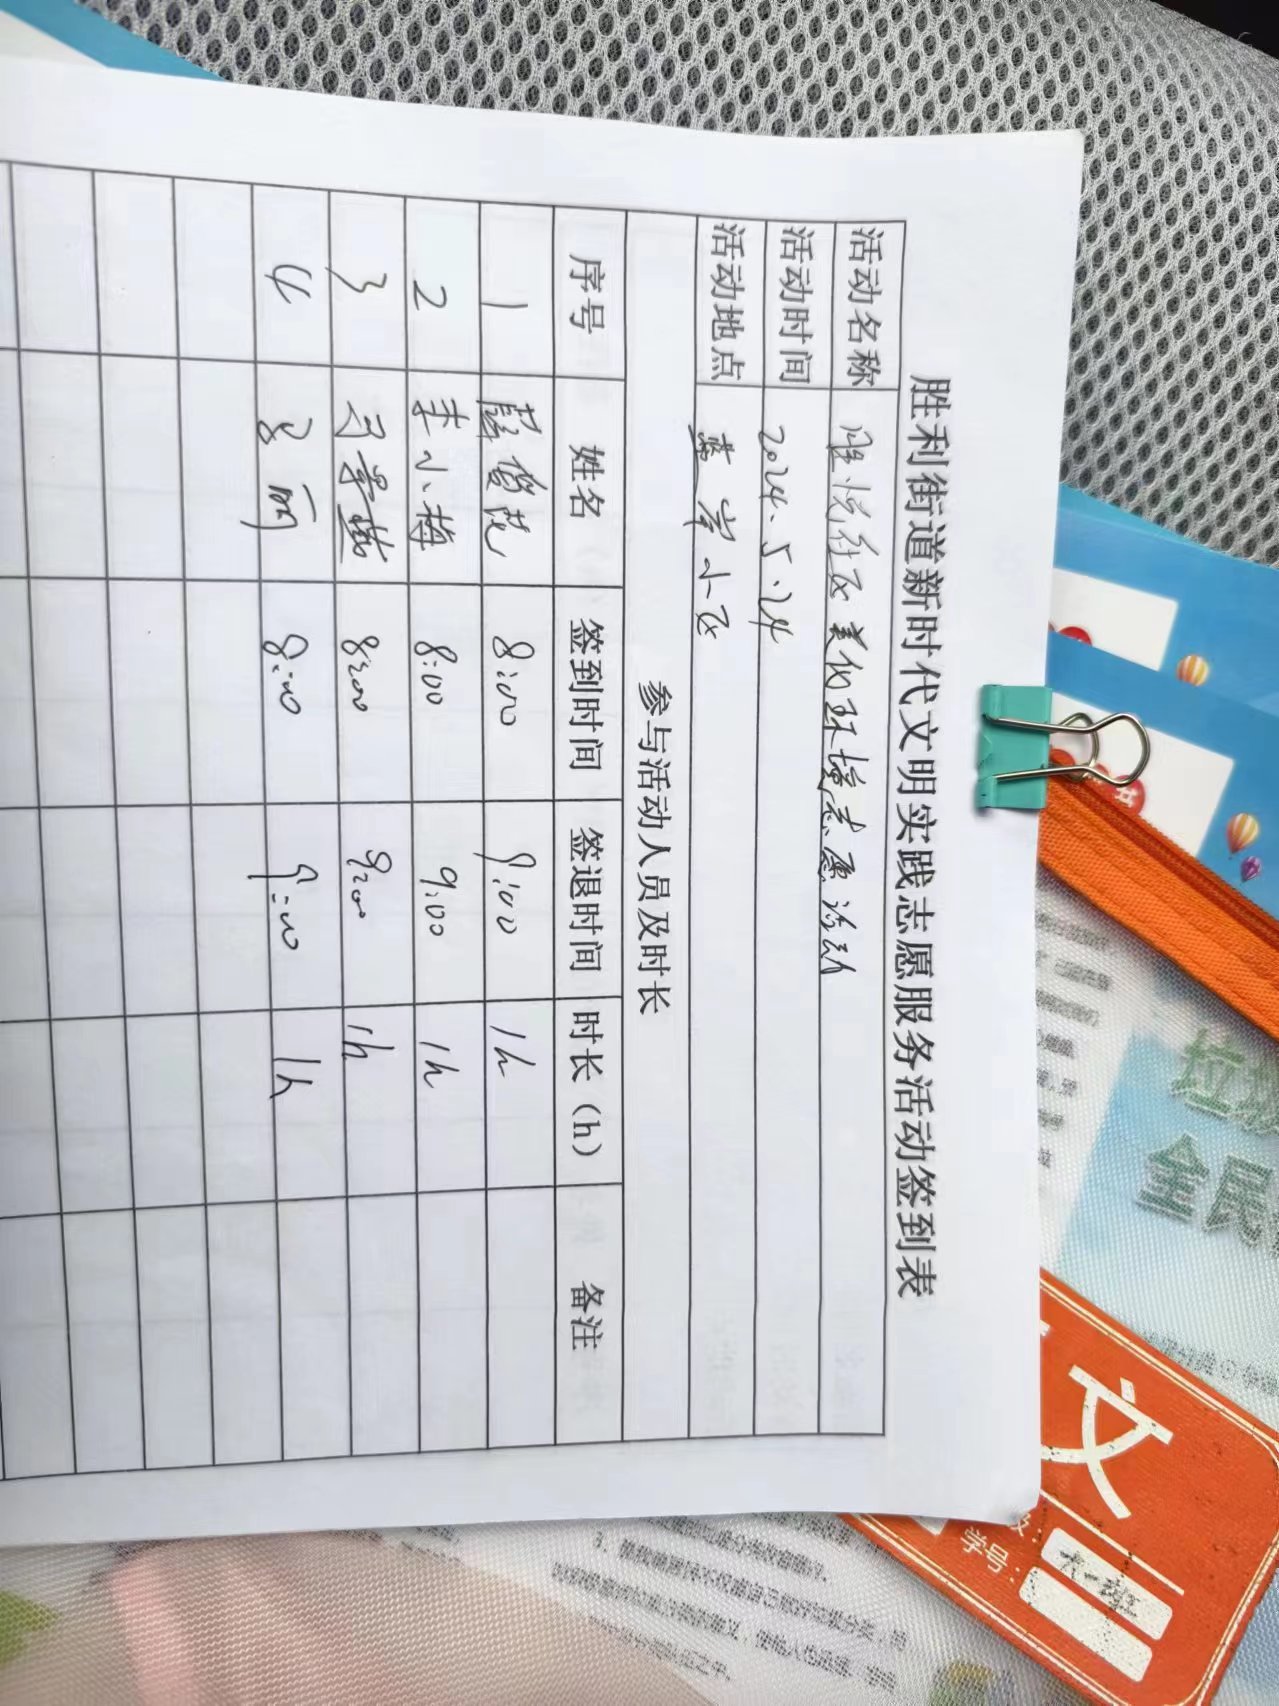 胜利街道新时代文明实践志愿服务活动签到表
活动名称 胜悦社区美化环境志愿活动
活动时间 2024.5.24
活动地点 蓝岸小区
参与活动人员及时长
序号 姓名 签到时间 签退时间 时长（h） 备注
1 8:00 9:00 1h
2 小梅 8:00 9:00 1h
3 8:00 9:00 1h
4 丽 8:00 9:00 1h
垃
全民
文
级：六一班
学号：